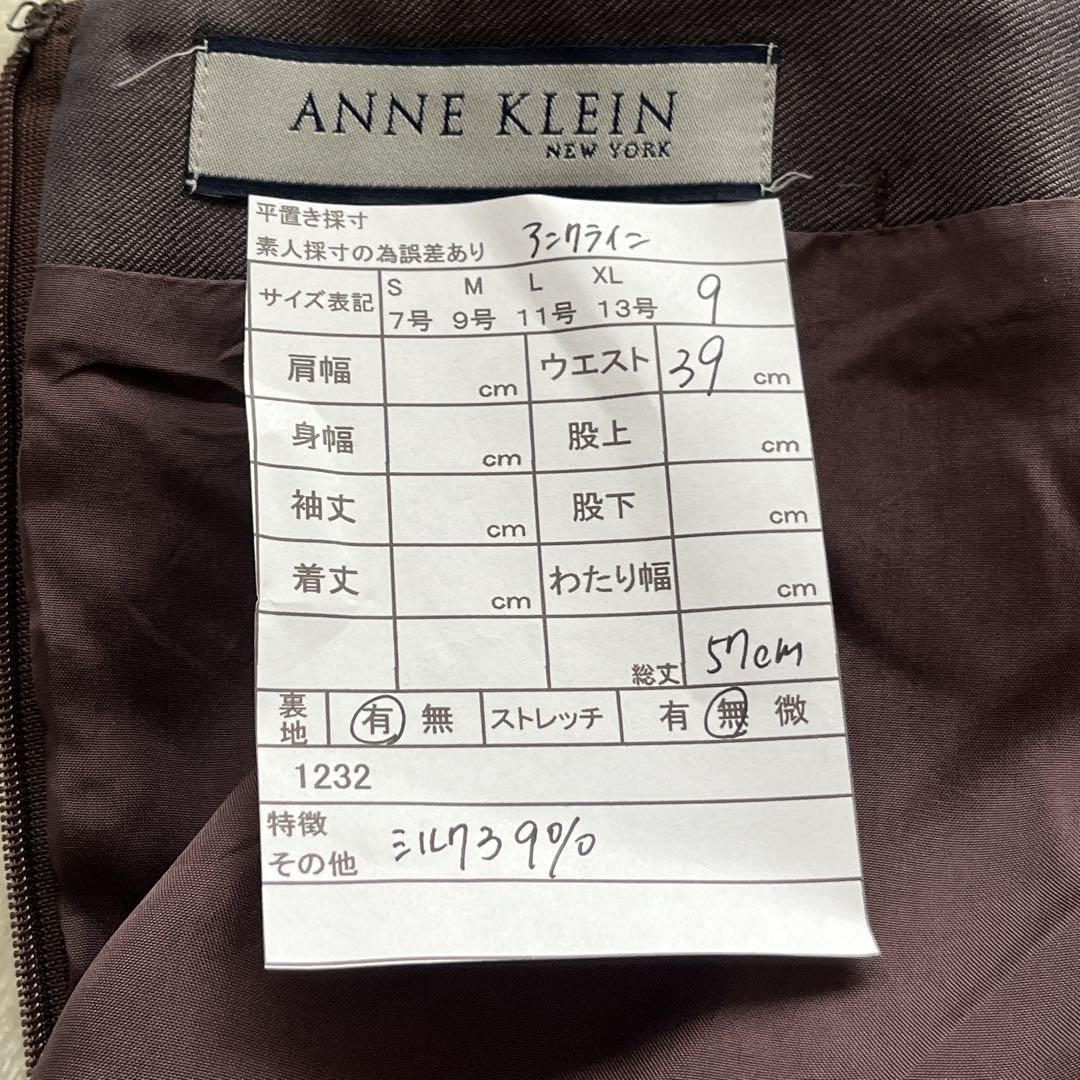 ANNE KLEIN
NEW YORK
平置き採寸
素人採寸の為誤差あり アンクライン
サイズ表記 S M L XL
7号 9号 11号 13号 9
肩幅 cm ウエスト 39 cm
身幅 cm 股上 cm
袖丈 cm 股下 cm
着丈 cm わたり幅 cm
総丈 57cm
裏地 有 無 ストレッチ 有 無 微
1232
特徴
その他 シルク39%